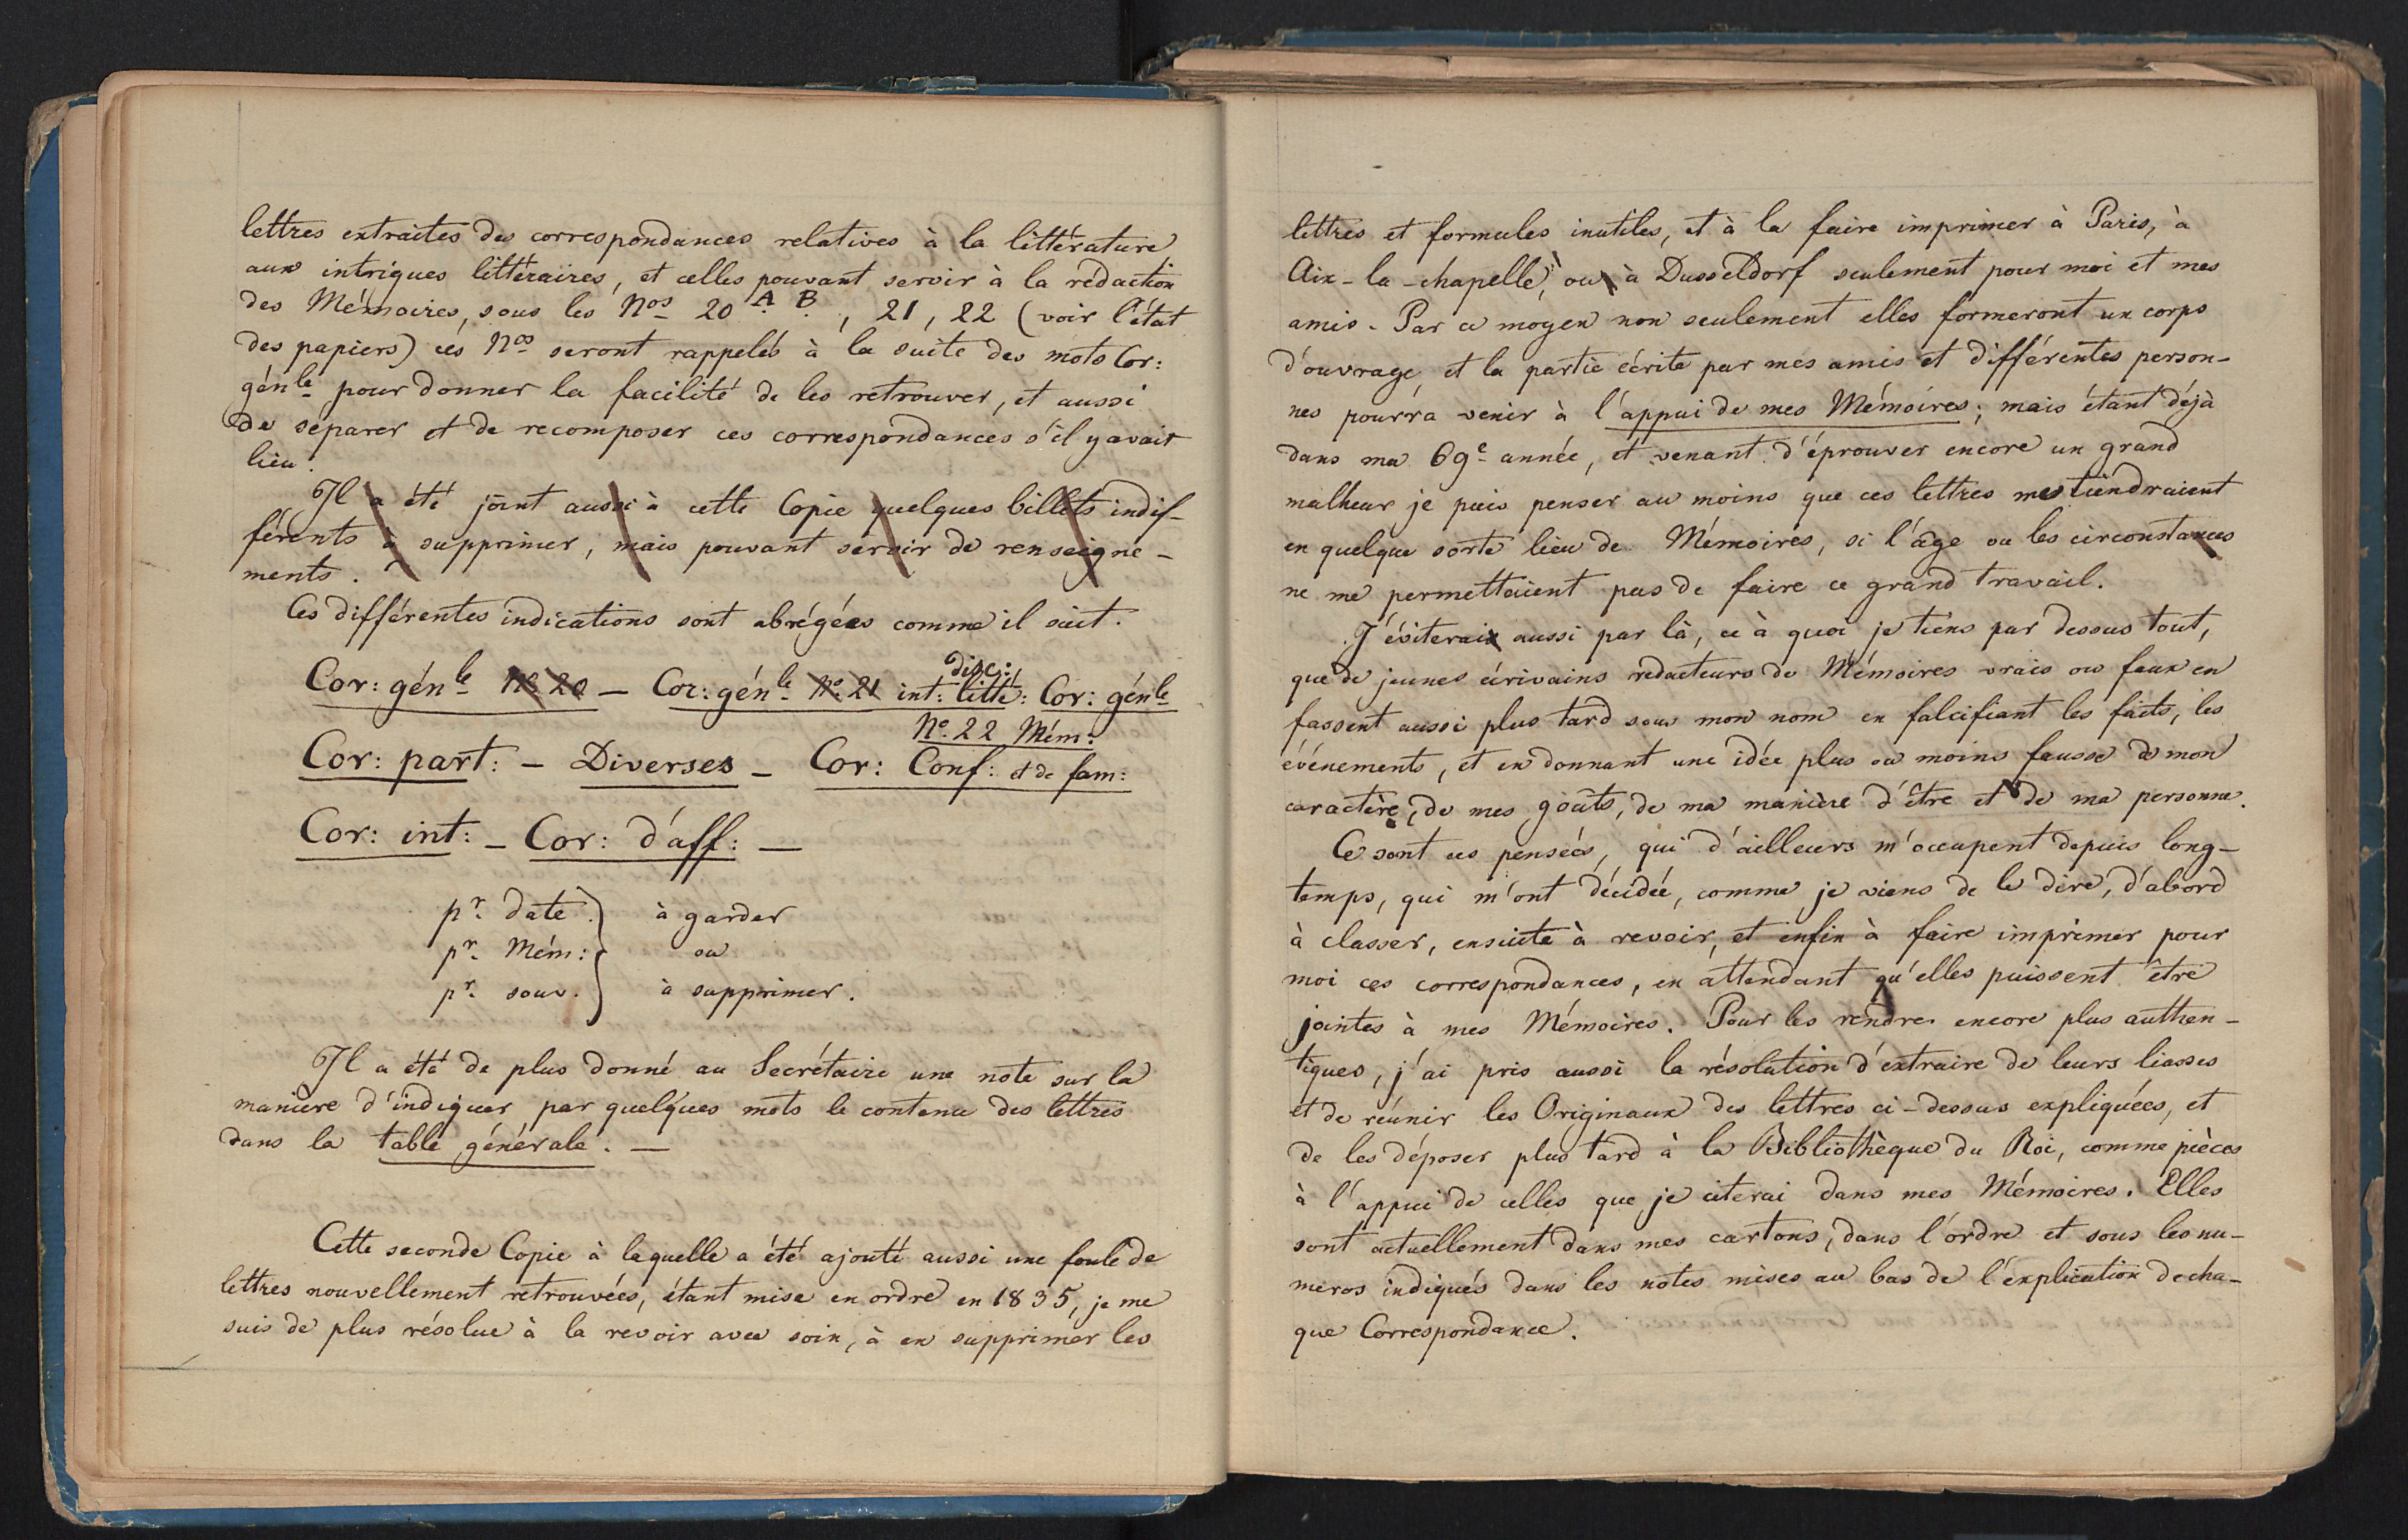 lettres extraites des correspondances relatives à la littérature
aux intrigues littéraires, et celles pouvant servir à la rédaction
des Mémoires, sous les Nos 20 A. B., 21, 22 (voir l'état
des papiers) ces Nos seront rappelés à la suite des mots Cor:
génle pour donner la facilité de les retrouver, et aussi
de séparer et de recomposer ces correspondances s'il y avait
lieu.
Il a été joint aussi à cette Copie quelques billets indif-
férents à supprimer, mais pouvant servir de renseigne-
ments.
Ces différentes indications sont abrégées comme il suit.
disc:
Cor: génle No 20 – Cor: génle No 21 int: litté: Cor: génle
No. 22 Mém:
Cor: part: – Diverses – Cor: Conf: et de fam:
Cor: int: – Cor: d'aff: —
pr. date } à garder
pr. Mém: } ou
pr. souv. } à supprimer.
Il a été de plus donné au Secrétaire une note sur la
manière d'indiquer par quelques mots le contenu des lettres
dans la table générale. —
Cette seconde Copie à laquelle a été ajouté aussi une foule de
lettres nouvellement retrouvées, étant mise en ordre en 1835, je me
suis de plus résolue à la revoir avec soin, à en supprimer les
lettres et formules inutiles, et à la faire imprimer à Paris, à
Aix-la-chapelle, ou à Dusseldorf seulement pour moi et mes
amis. Par ce moyen non seulement elles formeront un corps
d'ouvrage, et la partie écrite par mes amis et différentes person-
nes pourra venir à l'appui de mes Mémoires; mais étant déjà
dans ma 69e année, et venant d'éprouver encore un grand
malheur je puis penser au moins que ces lettres me tiendraient
en quelque sorte lieu de Mémoires, si l'âge ou les circonstances
ne me permettaient pas de faire ce grand travail.
J'éviterai aussi par là, ce à quoi je tiens par dessus tout,
que de jeunes écrivains redacteurs de Mémoires vrais ou faux en
fassent aussi plus tard sous mon nom en falcifiant les faits, les
événements, et en donnant une idée plus ou moins fausse de mon
caractère, de mes goûts, de ma manière d'être et de ma personne.
Ce sont ces pensées, qui d'ailleurs m'occupent depuis long-
temps, qui m'ont décidée, comme je viens de le dire, d'abord
à classer, ensuite à revoir, et enfin à faire imprimer pour
moi ces correspondances, en attendant qu'elles puissent être
jointes à mes Mémoires. Pour les rendre encore plus authen-
tiques, j'ai pris aussi la résolution d'extraire de leurs liasses
et de réunir les Originaux des lettres ci-dessus expliquées, et
de les déposer plus tard à la Bibliothèque du Roi, comme pièces
à l'appui de celles que je citerai dans mes Mémoires. Elles
sont actuellement dans mes cartons, dans l'ordre et sous les nu-
meros indiqués dans les notes mises au bas de l'explication de cha-
que Correspondance.